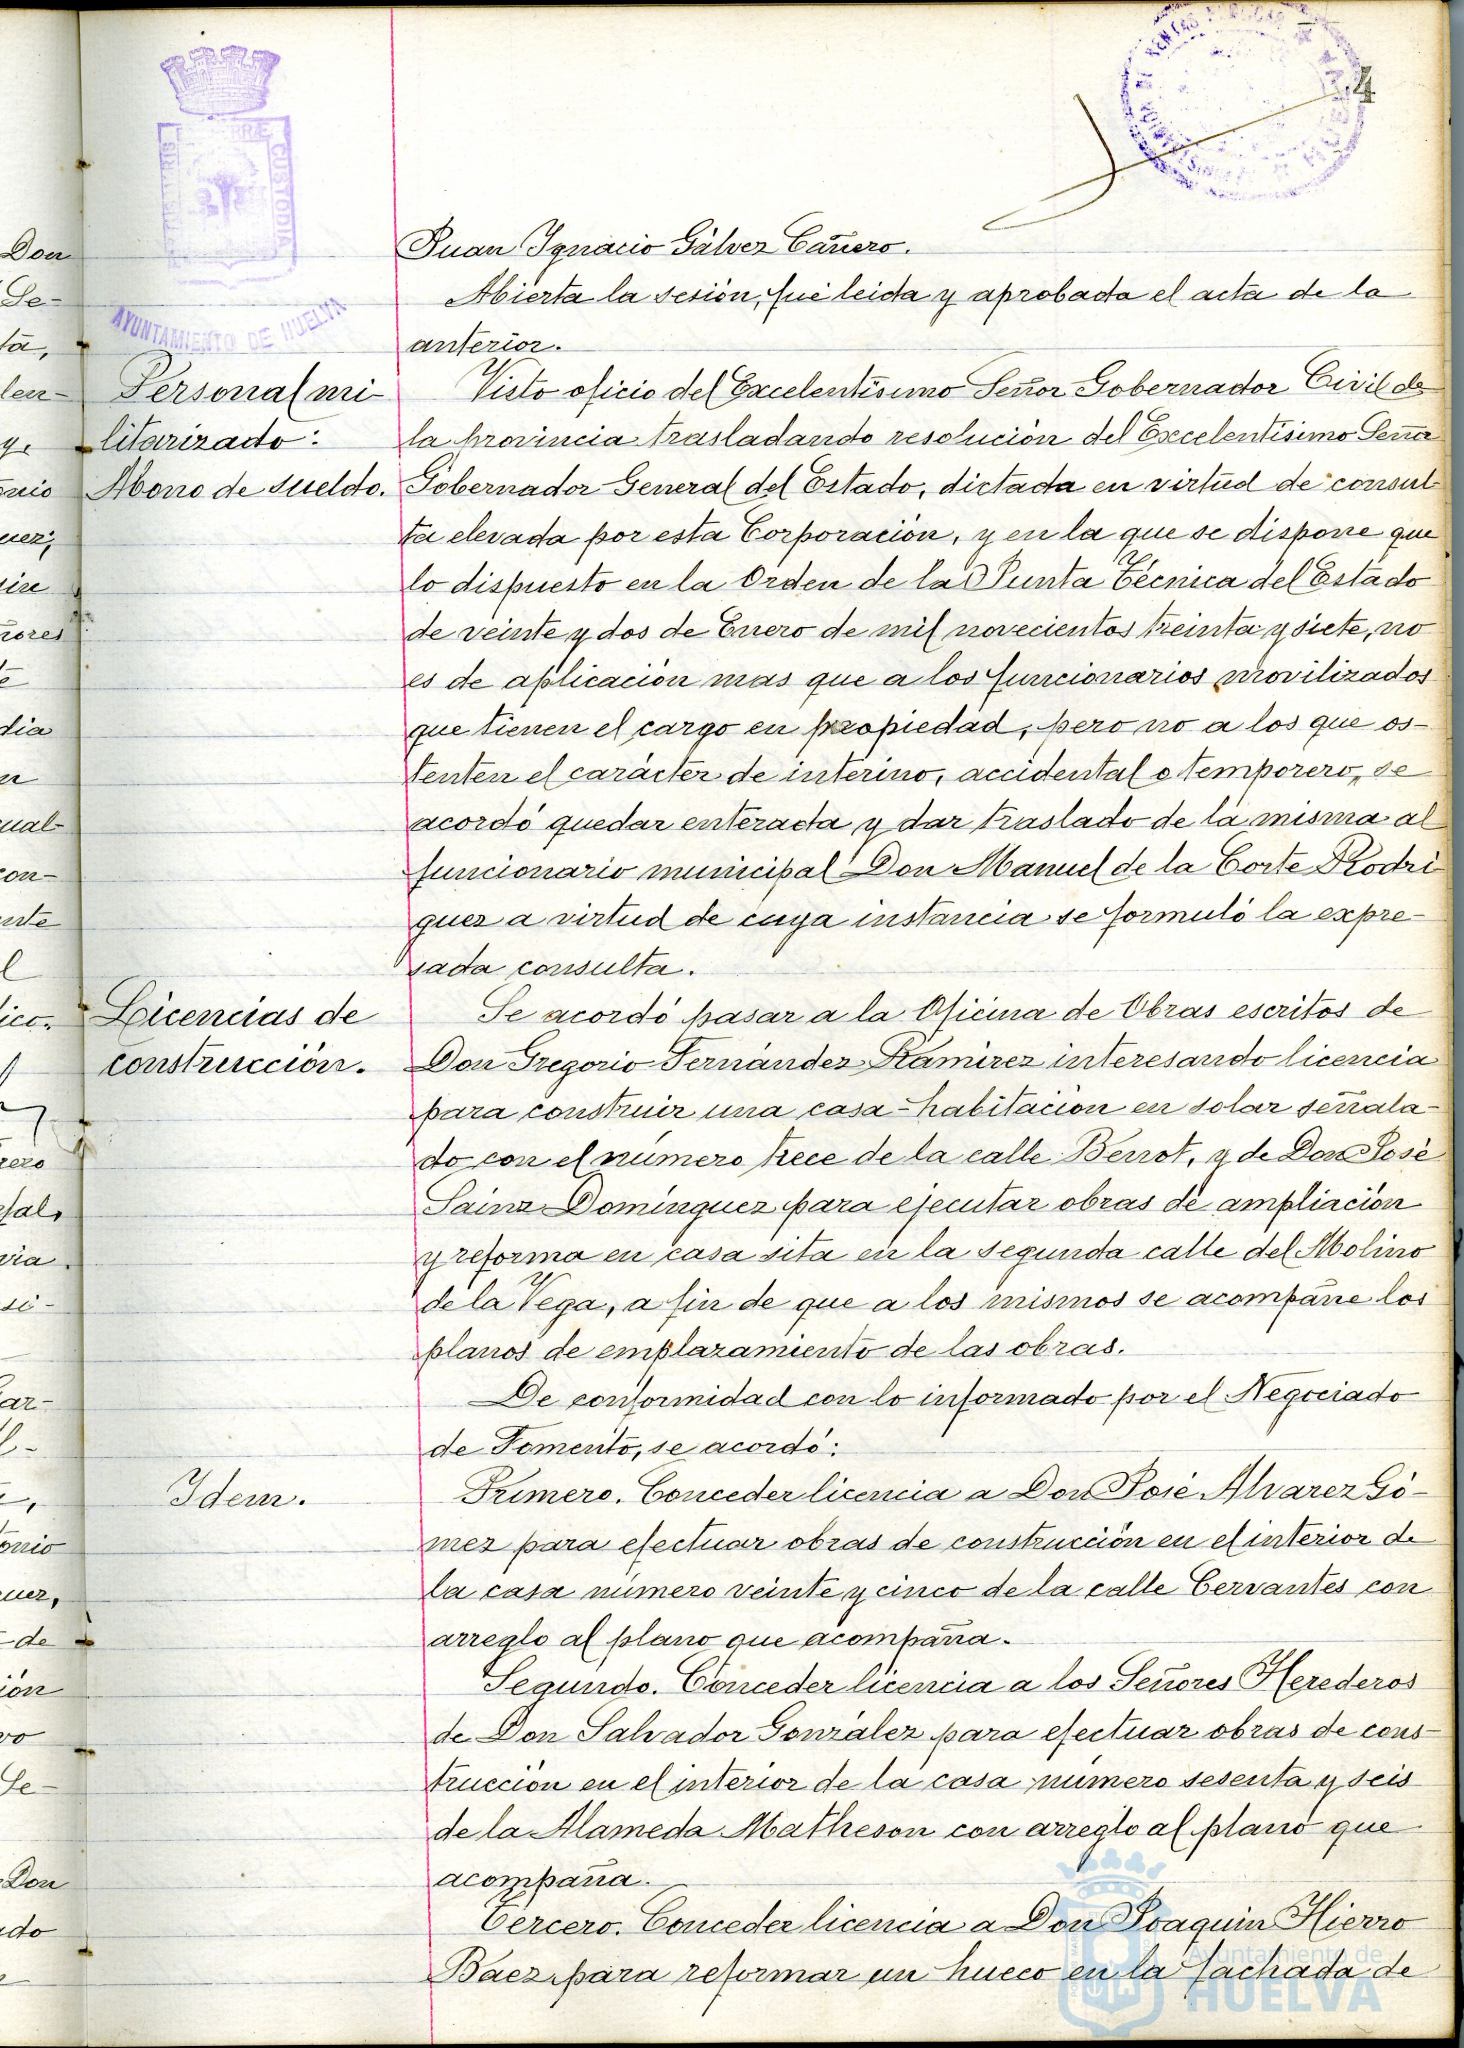 4
PORTUS MARIS ET TERRÆ CUSTODIA
AYUNTAMIENTO DE HUELVA
Juan Ignacio Gálvez Cañero.
Abierta la sesión, fué leida y aprobada el acta de la
anterior.
Personal mi-
litarizado:
Abono de sueldo.
Visto oficio del Excelentísimo Señor Gobernador Civil de
la provincia trasladando resolución del Excelentísimo Señor
Gobernador General del Estado, dictada en virtud de consul-
ta elevada por esta Corporación, y en la que se dispone que
lo dispuesto en la Orden de la Junta Técnica del Estado
de veinte y dos de Enero de mil novecientos treinta y siete, no
es de aplicación mas que a los funcionarios movilizados
que tienen el cargo en propiedad, pero no a los que os-
tenten el carácter de interino, accidental o temporero, se
acordó quedar enterada y dar traslado de la misma al
funcionario municipal Don Manuel de la Corte Rodri
guez a virtud de cuya instancia se formuló la expre-
sada consulta.
Licencias de
construcción.
Se acordó pasar a la Oficina de Obras escritos de
Don Gregorio Fernández Ramirez interesando licencia
para construir una casa-habitación en solar señala-
do con el número trece de la calle Berrot, y de Don José
Sainz Domínguez para ejecutar obras de ampliación
y reforma en casa sita en la segunda calle del Molino
de la Vega, a fin de que a los mismos se acompañe los
planos de emplazamiento de las obras.
De conformidad con lo informado por el Negociado
de Fomento, se acordó:
Idem.
Primero. Conceder licencia a Don José Alvarez Gó-
mez para efectuar obras de construcción en el interior de
la casa número veinte y cinco de la calle Cervantes con
arreglo al plano que acompaña.
Segundo. Conceder licencia a los Señores Herederos
de Don Salvador González para efectuar obras de cons-
trucción en el interior de la casa número sesenta y seis
de la Alameda Matheson con arreglo al plano que
acompaña.
Tercero. Conceder licencia a Don Joaquin Hierro
Baez para reformar un hueco en la fachada de
Ayuntamiento de
HUELVA